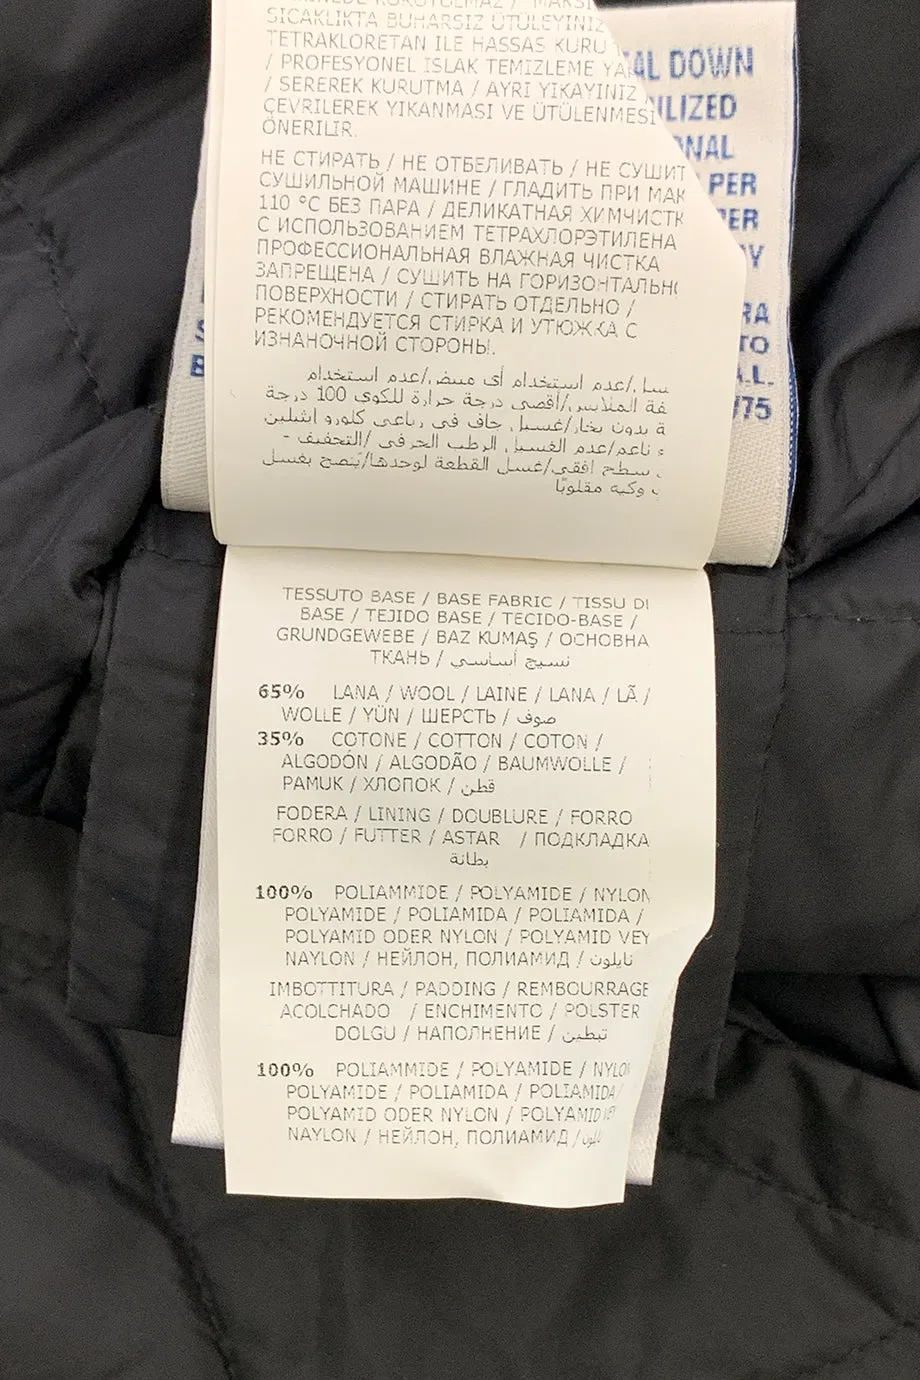 SICAKLIKTA BUHARSIZ ÜTÜLEYİNİZ
TETRAKLORETAN ILE HASSAS KURU
/ PROFESYONEL ISLAK TEMIZLEME
/ SEREREK KURUTMA / AYRI YIKAYINIZ
ÇEVRILEREK YIKANMASI VE ÜTÜLENMESI
ÖNERILIR.
НЕ СТИРАТЬ / НЕ ОТБЕЛИВАТЬ / НЕ СУШИТ
СУШИЛЬНОЙ МАШИНЕ / ГЛАДИТЬ ПРИ МАК
110 °C БЕЗ ПАРА / ДЕЛИКАТНАЯ ХИМЧИСТК
С ИСПОЛЬЗОВАНИЕМ ТЕТРАХЛОРЭТИЛЕНА
ПРОФЕССИОНАЛЬНАЯ ВЛАЖНАЯ ЧИСТКА
ЗАПРЕЩЕНА / СУШИТЬ НА ГОРИЗОНТАЛЬНО
ПОВЕРХНОСТИ / СТИРАТЬ ОТДЕЛЬНО /
РЕКОМЕНДУЕТСЯ СТИРКА И УТЮЖКА С
ИЗНАНОЧНОЙ СТОРОНЫ.
/عدم استخدام أي مبيض/عدم استخدام
الملابس/أقصى درجة حرارة للكوي 100 درجة
بدون بخار/غسيل جاف في رباعي كلورو اثيلين
ناعم/عدم الغسيل الرطب الحرفي /التجفيف -
سطح افقي/غسل القطعة لوحدها/يُنصح بغسل
وكيه مقلوبًا
AL DOWN
ILIZED
NAL
PER
PER
BY
RA
TO
A.L.
775
TESSUTO BASE / BASE FABRIC / TISSU DI
BASE / TEJIDO BASE / TECIDO-BASE /
GRUNDGEWEBE / BAZ KUMAŞ / ОСНОВНА
ТКАНЬ / نسيج أساسي
65% LANA / WOOL / LAINE / LANA / LÃ /
WOLLE / YÜN / ШЕРСТЬ / صوف
35% COTONE / COTTON / COTON /
ALGODÓN / ALGODÃO / BAUMWOLLE /
PAMUK / ХЛОПОК / قطن
FODERA / LINING / DOUBLURE / FORRO
FORRO / FUTTER / ASTAR / ПОДКЛАДКА
بطانة
100% POLIAMMIDE / POLYAMIDE / NYLON
POLYAMIDE / POLIAMIDA / POLIAMIDA /
POLYAMID ODER NYLON / POLYAMID VEY
NAYLON / НЕЙЛОН, ПОЛИАМИД / نايلون
IMBOTTITURA / PADDING / REMBOURRAGE
ACOLCHADO / ENCHIMENTO / POLSTER
DOLGU / НАПОЛНЕНИЕ / تبطين
100% POLIAMMIDE / POLYAMIDE / NYLO
POLYAMIDE / POLIAMIDA / POLIAMIDA/
POLYAMID ODER NYLON / POLYAMID VE
NAYLON / НЕЙЛОН, ПОЛИАМИД / نايلون